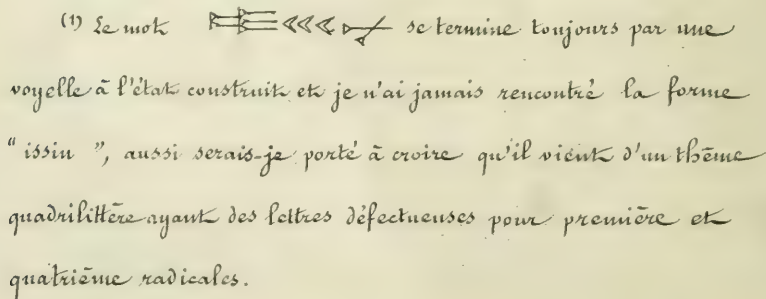 (1) Le mot se termine toujours par une
voyelle à l'état construit et je n'ai jamais rencontré la forme
" issin ", aussi serais-je porté à croire qu'il vient d'un thème
quadrilittère ayant des lettres défectueuses pour première et
quatrième radicales.